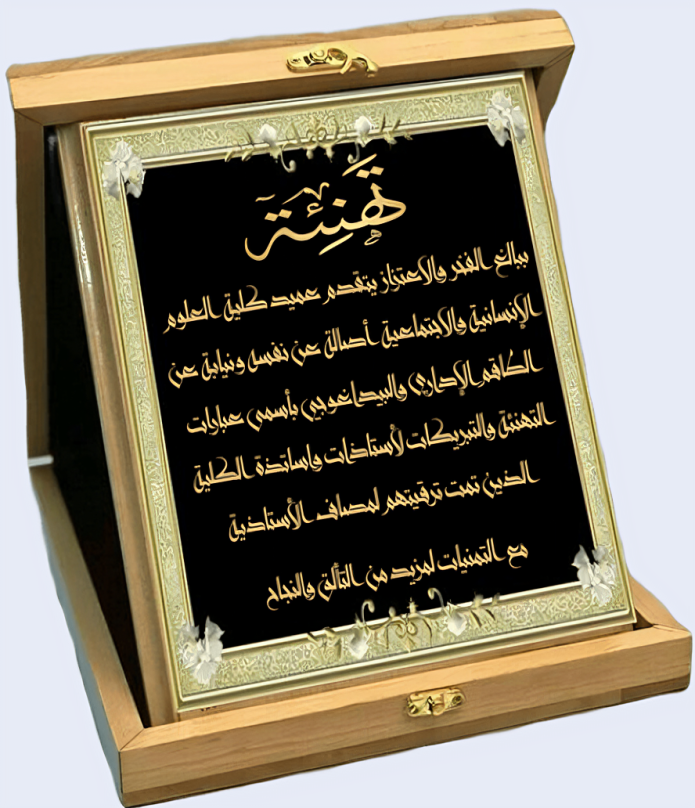 تَهنِئة
ببالغ الفخر والاعتزاز يتقدم عميد كلية العلوم
الإنسانية والاجتماعية أصالة عن نفسه ونيابة عن
الطاقم الإداري والبيداغوجي بأسمى عبارات
التهنئة والتبريكات لأستاذات واساتذة الكلية
الذين تمت ترقيتهم لمصاف الأستاذية
مع التمنيات لمزيد من التألق والنجاح